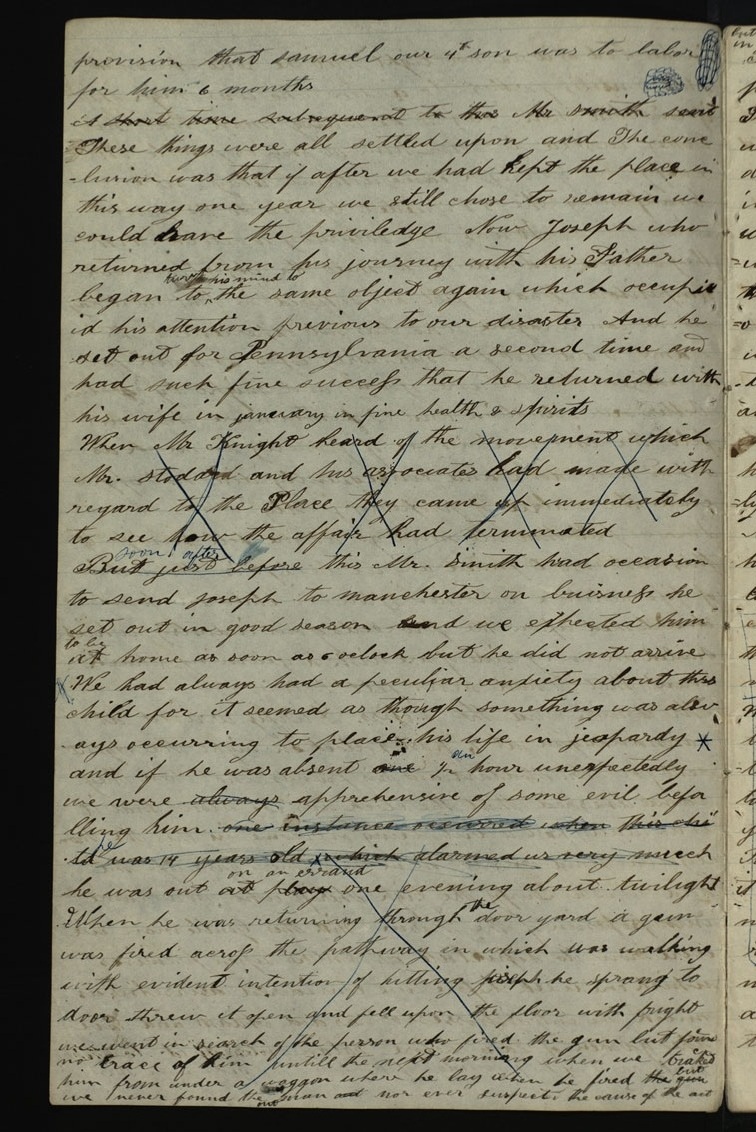 provision that samuel our 4th son was to labor
for him 6 months
A short time subsequent to this Mr smith sent
These things were all settled upon and The conc
-lusion was that if after we had kept the place in
this way one year we still chose to remain we
could have the priviledge Now Joseph who
returned from his journey with his Father
turn his mind to
began to the same object again which occupi
id his attention previous to our disaster And he
set out for Pennsylvania a second time and
had such fine success that he returned with
his wife in january in fine health & spirits
When Mr Knight heard of the movement which
Mr. stodard and his associates had made with
regard to the Place they came up immediately
to see how the affair had terminated
soon after
But just before this Mr. Smith had occasion
to send joseph to manchester on buisness he
set out in good season and we expected him
to be
at home as soon as 6 oclock but he did not arrive
We had always had a peculiar anxiety about this
child for it seemed as though something was alw
ays occurring to place his life in jeopardy X
an
and if he was absent one ½ hour unexpectedly
we were always apprehensive of some evil befa
lling him. one instance occurred when this chi
he
ld was 14 years old which alarmed us very much
on an errand
he was out at play one evening about twilight
the
When he was returning through door yard a gun
was fired across the pathway in which was walking
with evident intention of hitting joseph he sprang to
door threw it open and fell upon the floor with fright
we went in search of the person who fired the gun but found
no trace of him untill the next morning when we tracked
him from under a waggon where he lay when he fired the gun
but
we never found the man out nor ever suspected the cause of the act